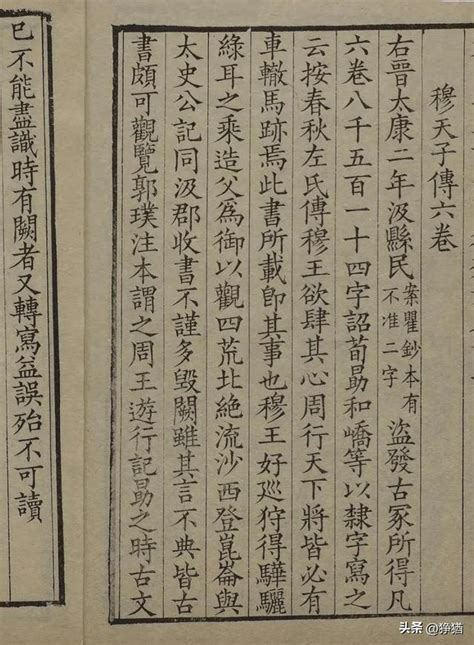 穆天子傳六卷
右晉太康二年汲縣民案瞿鈔本有不准二字盜發古冢所得凡
六卷八千五百一十四字詔荀勗和嶠等以隸字寫之
云按春秋左氏傳穆王欲肆其心周行天下將皆必有
車轍馬跡焉此書所載卽其事也穆王好巡狩得驊騮
綠耳之乘造父為御以觀四荒北絕流沙西登崑崙與
太史公記同汲郡收書不謹多毀闕雖其言不典皆古
書頗可觀覽郭璞注本謂之周王遊行記勗之時古文
已不能盡識時有闕者又轉寫益誤殆不可讀
头条 @狰猶